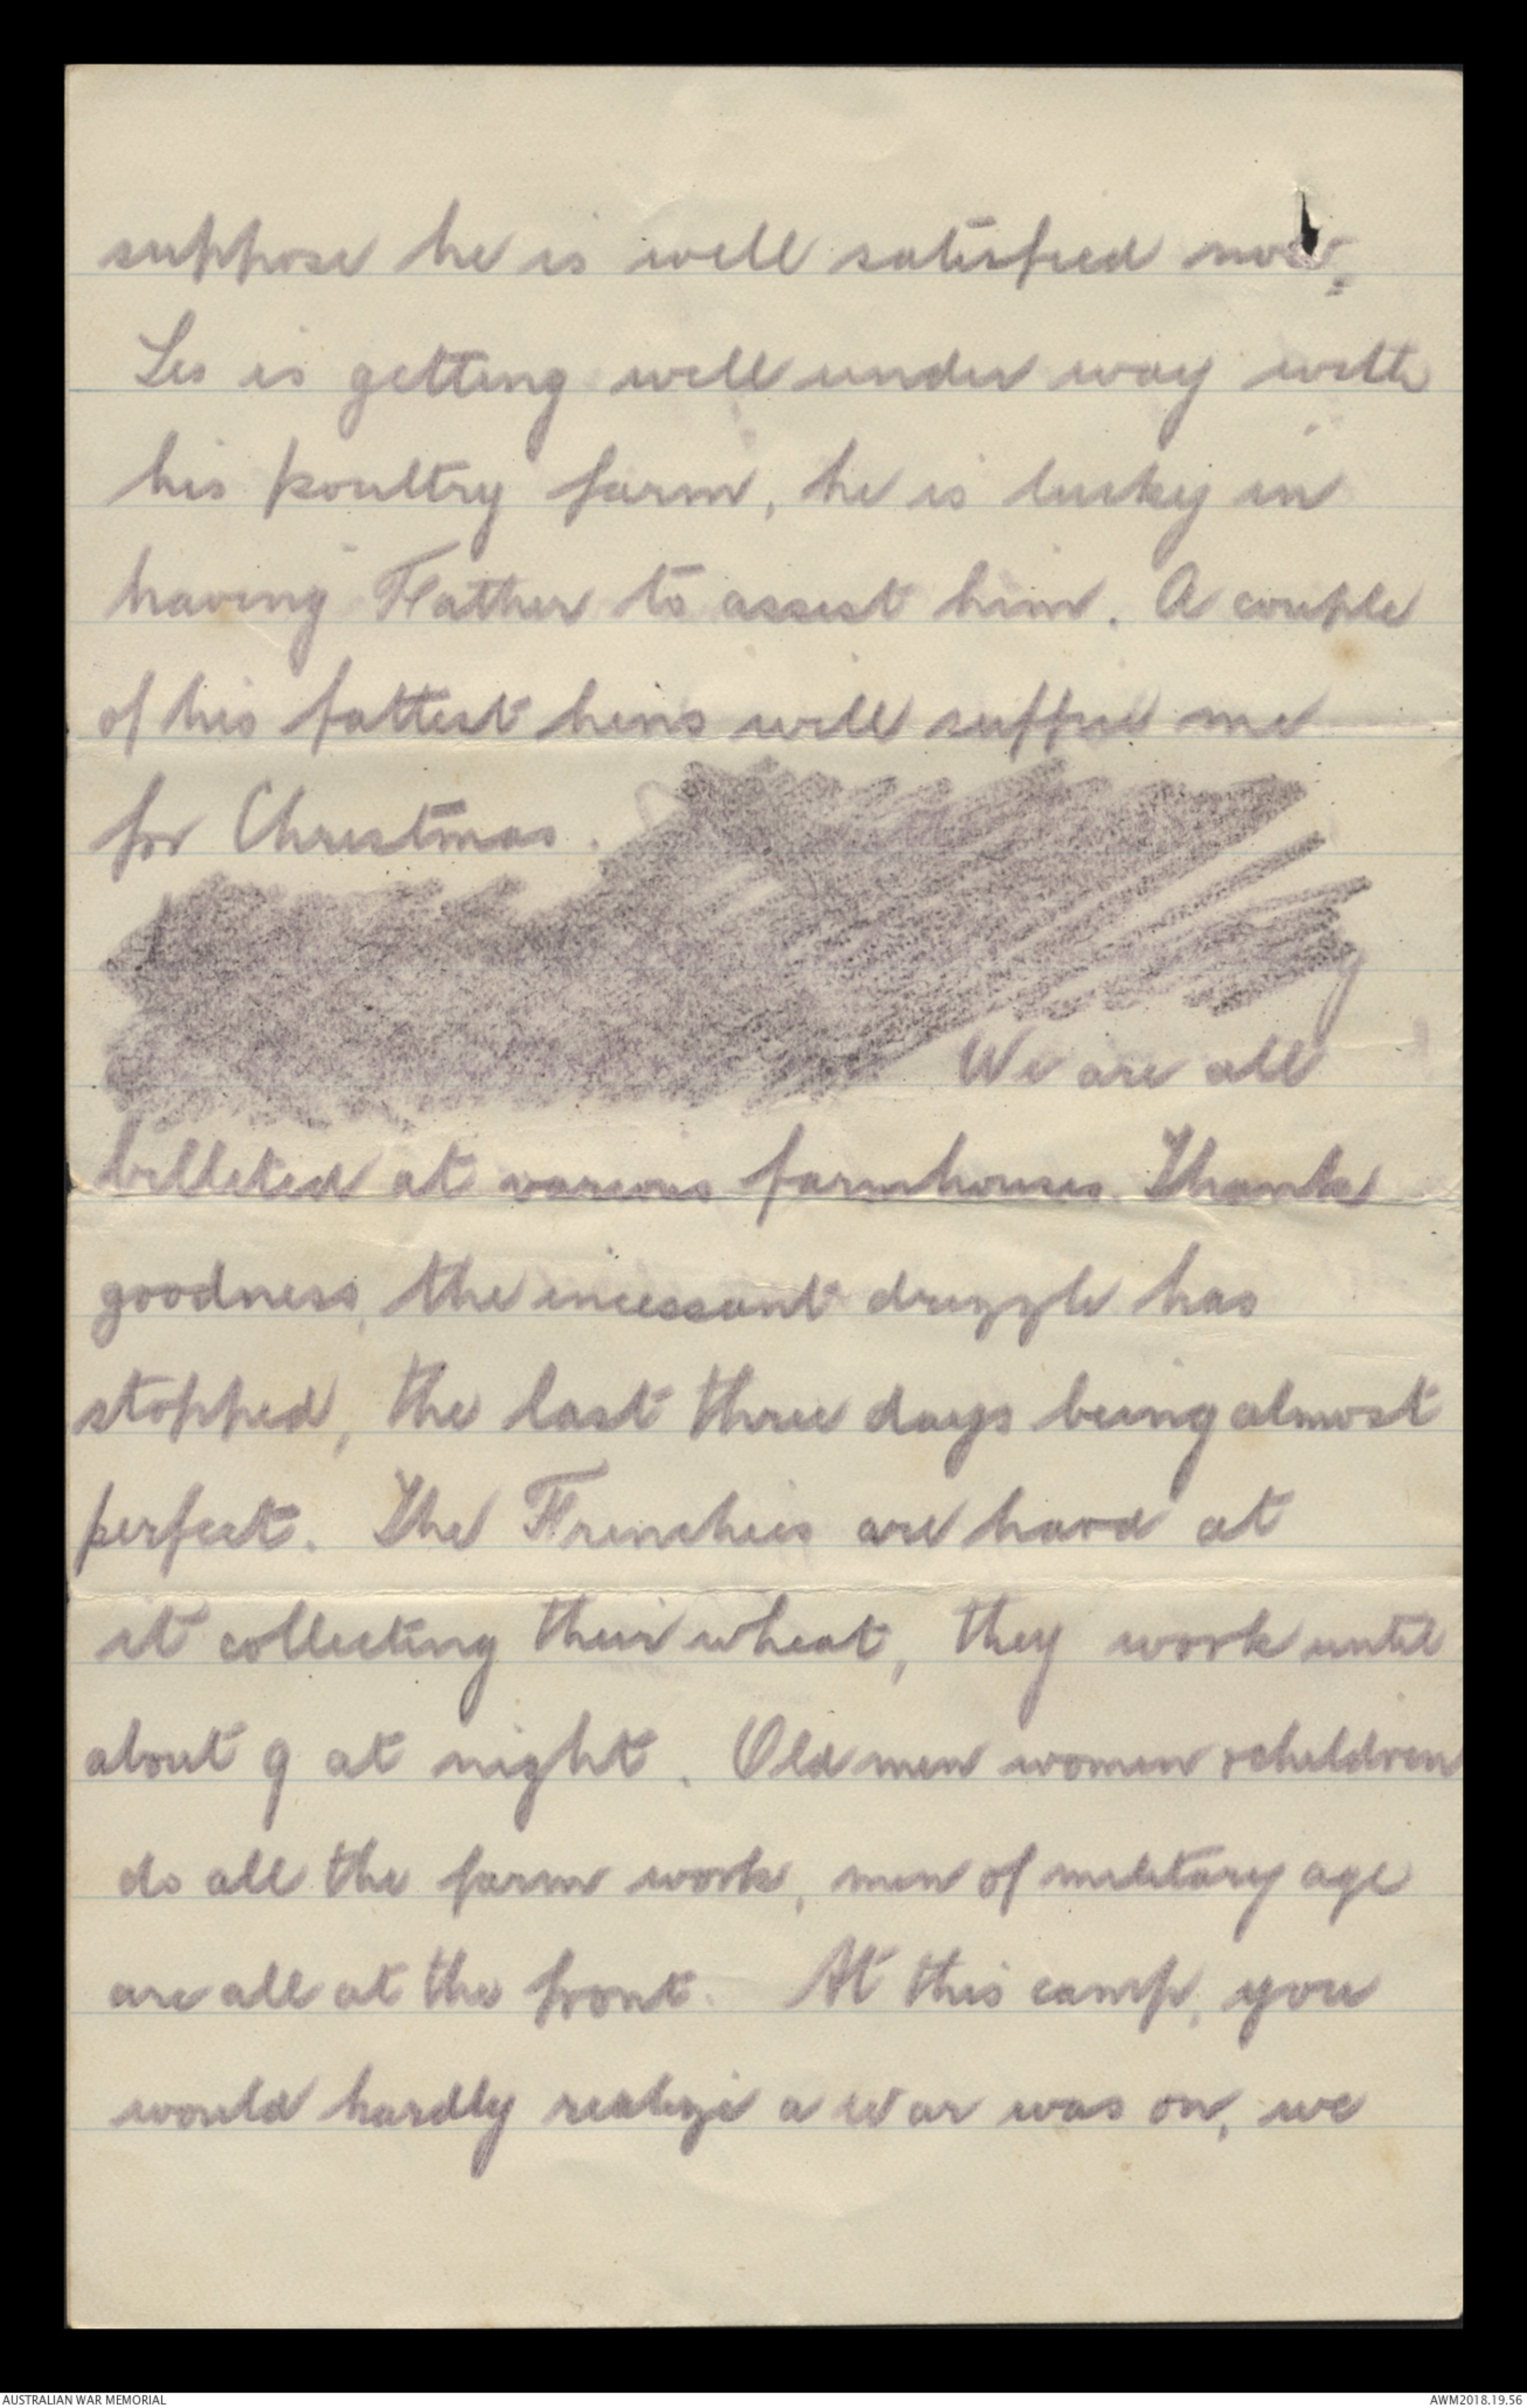 suppose he is well satisfied now.
Les is getting well under way with
his poultry farm, he is lucky in
having Father to assist him. A couple
of his fattest hens will suffice me
for Christmas.
We are all
billeted at various farmhouses. Thank
goodness, the incessant drizzle has
stopped, the last three days being almost
perfect. The Frenchies are hard at
it collecting their wheat, they work until
about 9 at night. Old men women & children
do all the farm work, men of military age
are all at the front. At this camp, you
would hardly realize a war was on, we
AUSTRALIAN WAR MEMORIAL
AWM2018.19.56